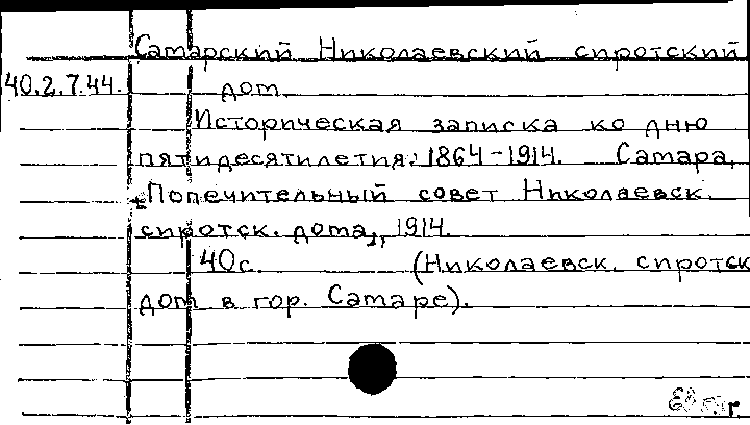 Самарский Николаевский сиротский
40.2.7.44. дом.
Историческая записка ко дню
пятидесятилетия: 1864-1914. Самара,
"Попечительный совет Николаевск.
сиротск. дома", 1914.
40с. (Николаевск. сиротск
дом в гор. Самаре).